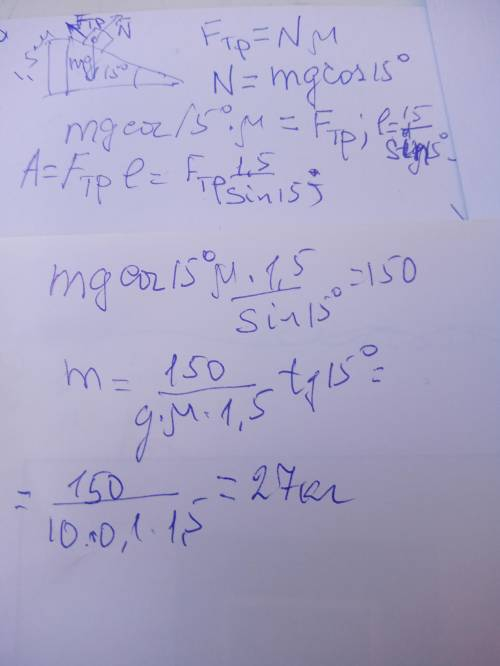 Fтр N
mg 15°
Fтр = Nμ
N = mg cos 15°
mg cos 15° · μ = Fтр; l = 1,5 / sin 15°
A = Fтр l = Fтр 1,5 / sin 15°;
mg cos 15° μ · 1,5 / sin 15° = 150
m = 150 / g · μ · 1,5 tg 15° =
= 150 / 10 · 0,1 · 1,5 = 27 кг